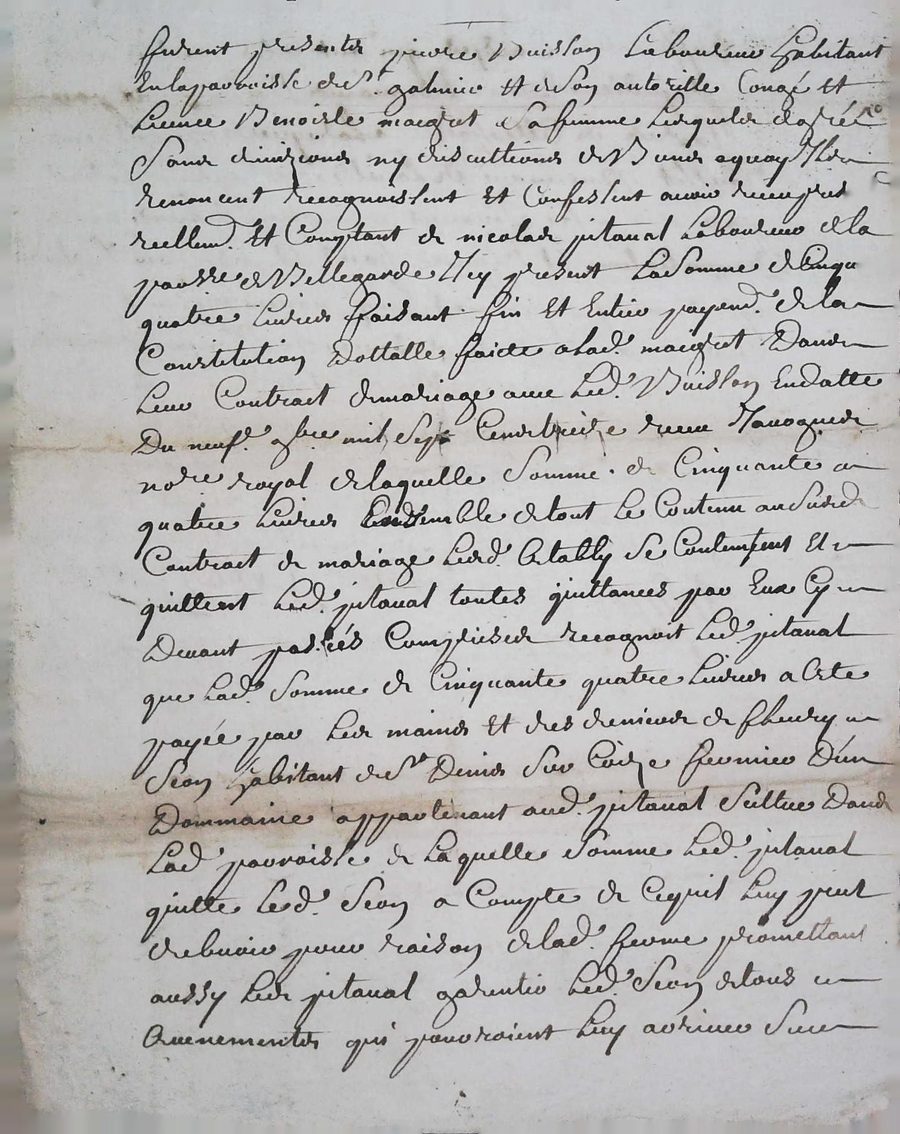 furent presentes pierre Buisson Laboureur habitant
En la parroisse de St. galmier Et de Son autorille Congé et
Licence Benoiste maigret Sa femme Lesqueles de grée
Sans divizions ny discuttions de Biens a quoy Ils
renoncent recognoissent Et Confessent avoir receu pnt
reellemt. Et Comptant de nicolas pitaval Laboureur de la
parsse de Bellegarde Icy present La Somme de Cinqu
quatre Livres faisant fin Et Entier payemt. de la
Constitution dottalle faicte a lad. maigret Dans
Leur Contract de mariage avec Led. Buisson En datte
Du neufe. 9bre mil Sept Cent treize receu
nore royal de laquelle Somme de Cinquante
quatre Livres Ensemble de tout Le Contenu au Susd
Contract de mariage Lesd. Se Contentent Et
quittent Led. pitaval toutes quittances par Eux Cy
Devant passées Comprises recognoit Led pitaval
que Lad. Somme de Cinquante quatre Livres a Este
payée par Les mains Et des deniers de fleury
Seon habitant de St Denis Sur Coize fermier D'un
Dommaine appartenant aud. pitaval Scittue Dans
Lad parroisse de Laquelle Somme Led. pitaval
quitte Led. Seon a Compte de Cequil Luy peut
debvoir pour raison de lad. ferme promettant
aussy Led pitaval garentir Led. Seon de tous
Evenements qui pourroient Luy arriver Sur